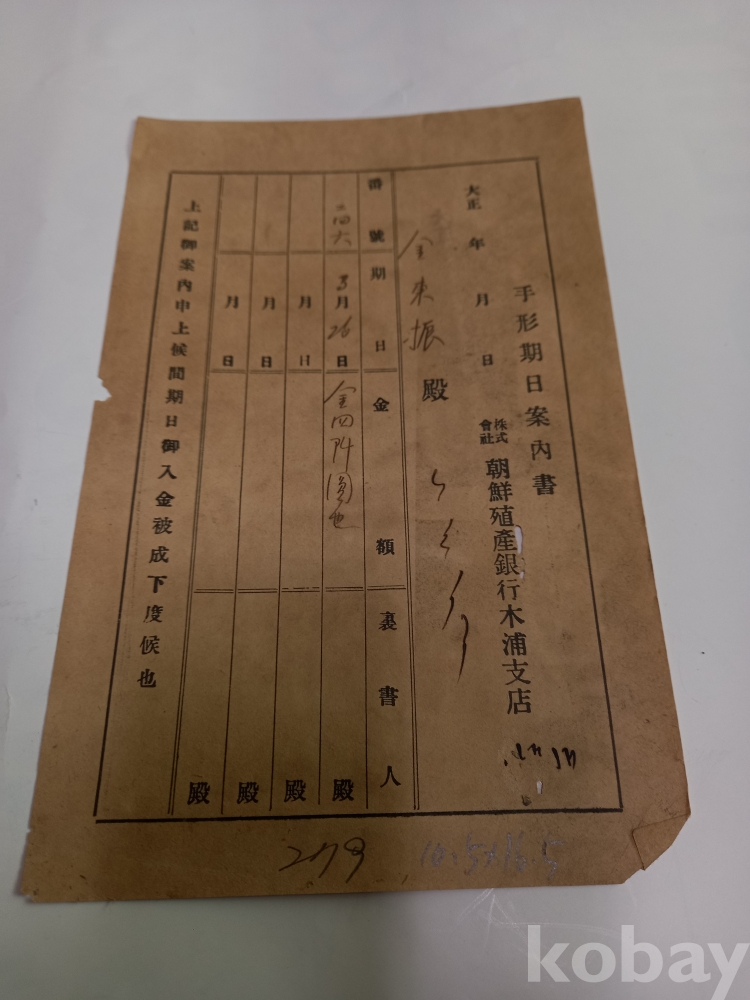 手形期日案內書
大正 年 月 日
株式會社 朝鮮殖產銀行木浦支店
金東振 殿
番號 期日 金額 裏書人
二四六 3月26日 金四阡圓也 殿
月 日 殿
月 日 殿
月 日 殿
上記御案內申上候間期日御入金被成下度候也
kobay